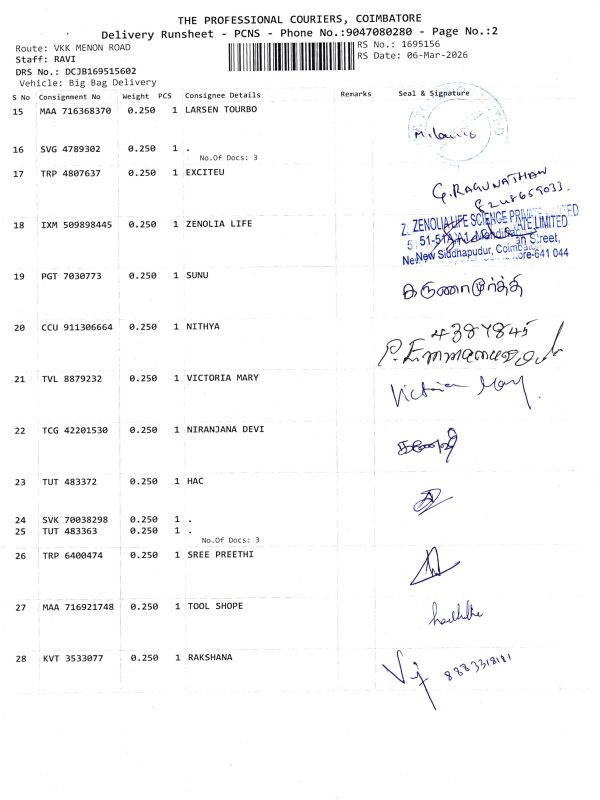 THE PROFESSIONAL COURIERS, COIMBATORE
Delivery Runsheet - PCNS - Phone No.:9047080280 - Page No.:2
Route: VKK MENON ROAD
RS No.: 1695156
Staff: RAVI
RS Date: 06-Mar-2026
DRS No.: DCJB169515602
Vehicle: Big Bag Delivery
S No Consignment No Weight PCS Consignee Details Remarks Seal & Signature
15 MAA 716368370 0.250 1 LARSEN TOURBO
16 SVG 4789302 0.250 1 .
No.Of Docs: 3
17 TRP 4807637 0.250 1 EXCITEU
G.RAGUNATHAN
18 IXM 509898445 0.250 1 ZENOLIA LIFE
ZENOLIALIFE SCIENCE PRIVATE LIMITED
New Siddhapudur, Coimbatore-641 044
19 PGT 7030773 0.250 1 SUNU
கருணாமூர்த்தி
20 CCU 911306664 0.250 1 NITHYA
4387845
21 TVL 8879232 0.250 1 VICTORIA MARY
Victoria Mary.
22 TCG 42201530 0.250 1 NIRANJANA DEVI
23 TUT 483372 0.250 1 HAC
24 SVK 70038298 0.250 1 .
25 TUT 483363 0.250 1 .
No.Of Docs: 3
26 TRP 6400474 0.250 1 SREE PREETHI
27 MAA 716921748 0.250 1 TOOL SHOPE
28 KVT 3533077 0.250 1 RAKSHANA